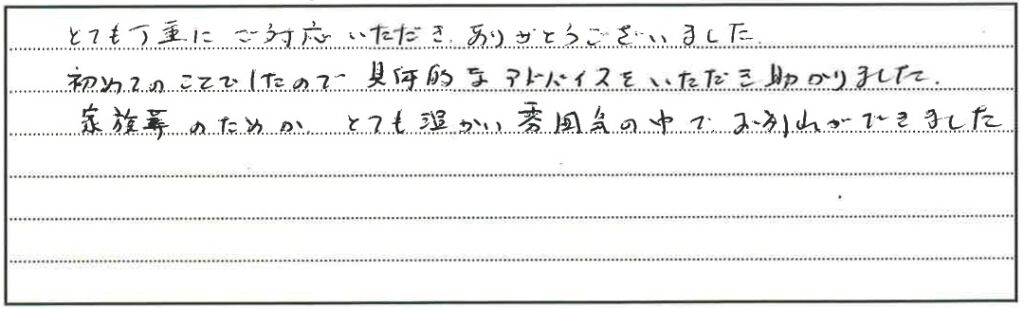 とても丁重にご対応いただき、ありがとうございました。
初めてのことでしたので具体的なアドバイスをいただき助かりました。
家族葬のためか、とても温かい雰囲気の中でお別れができました